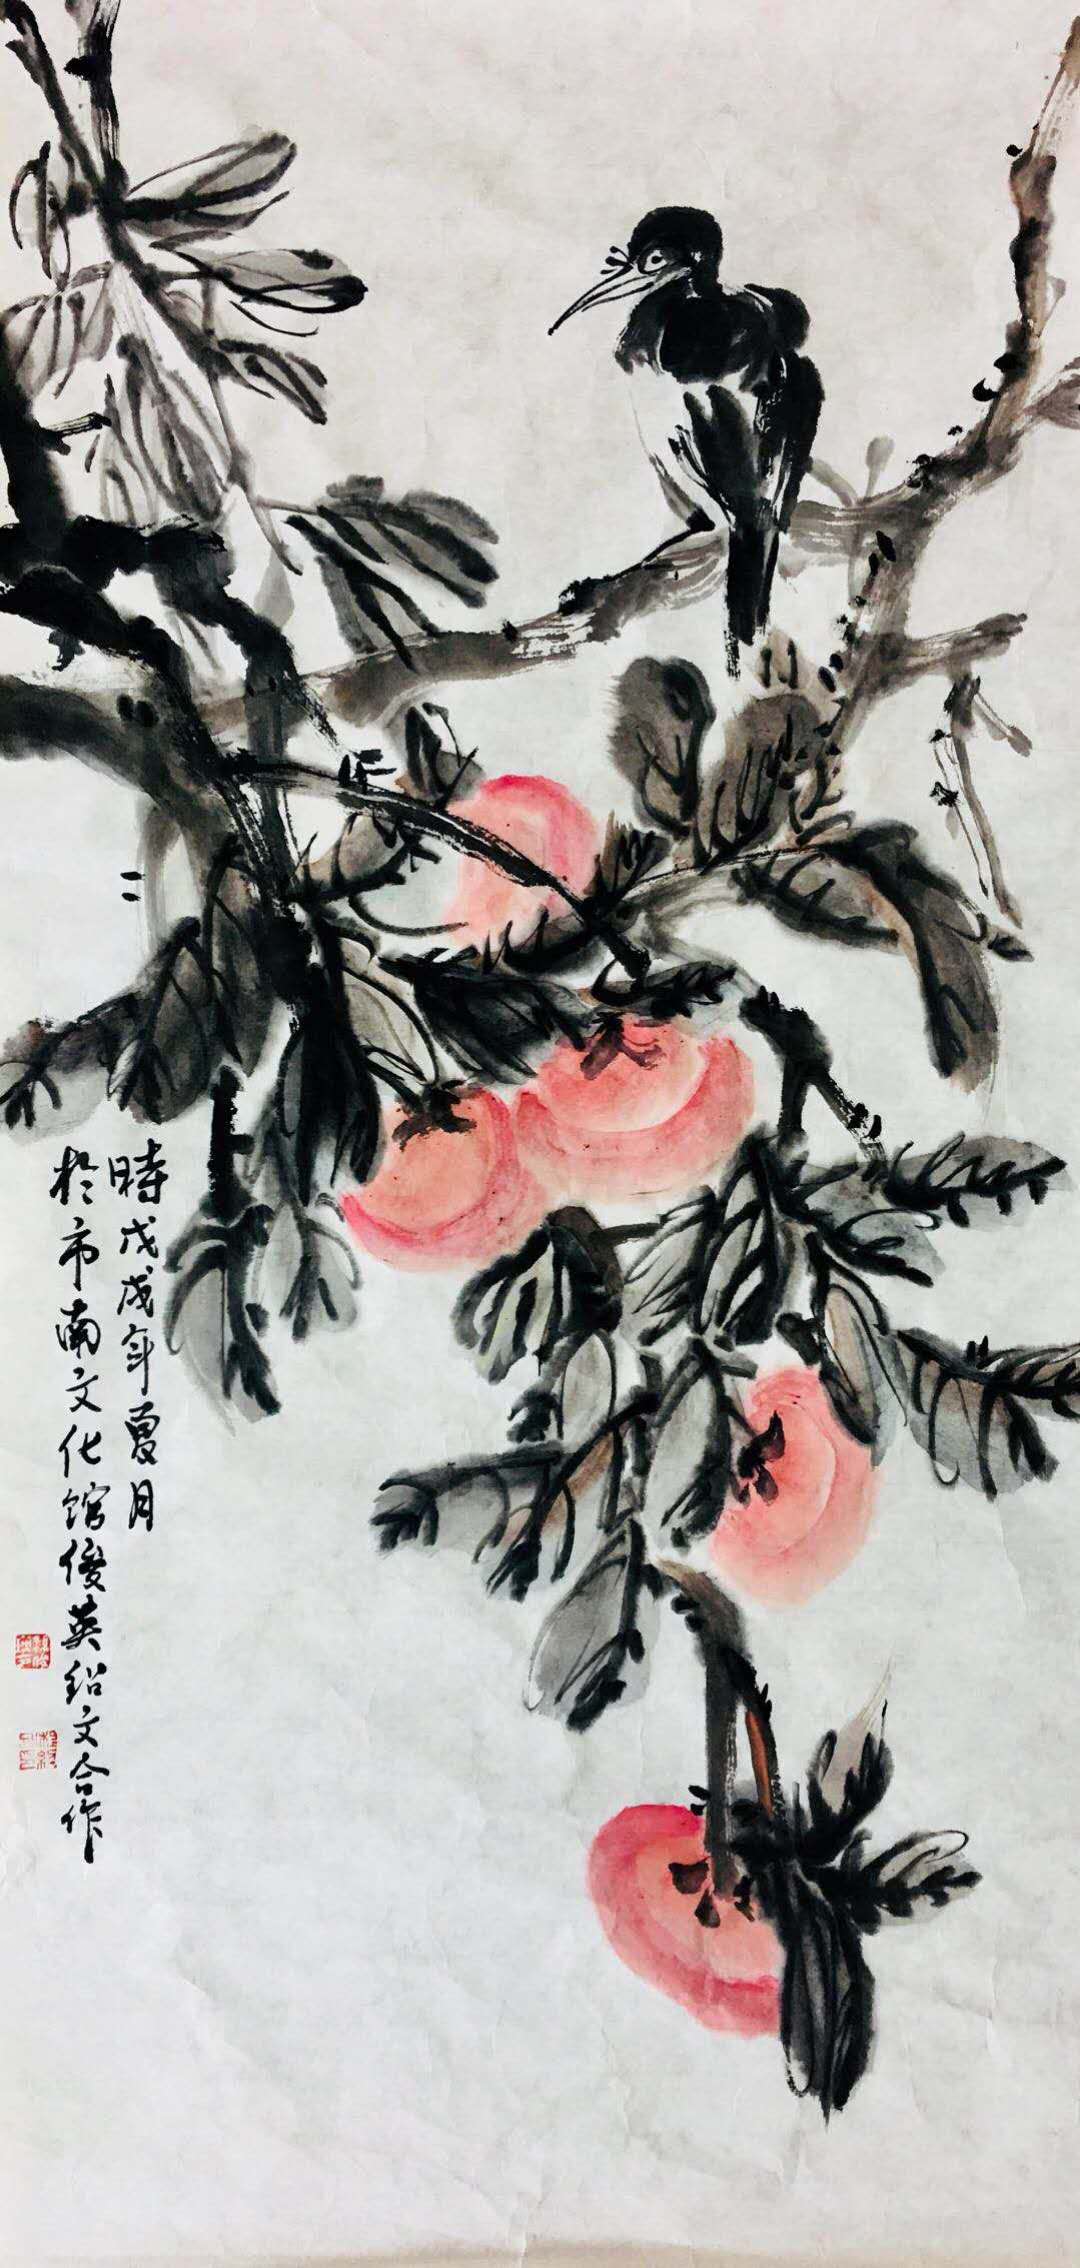 時戊戌年夏月
於市南文化馆俊英绍文合作